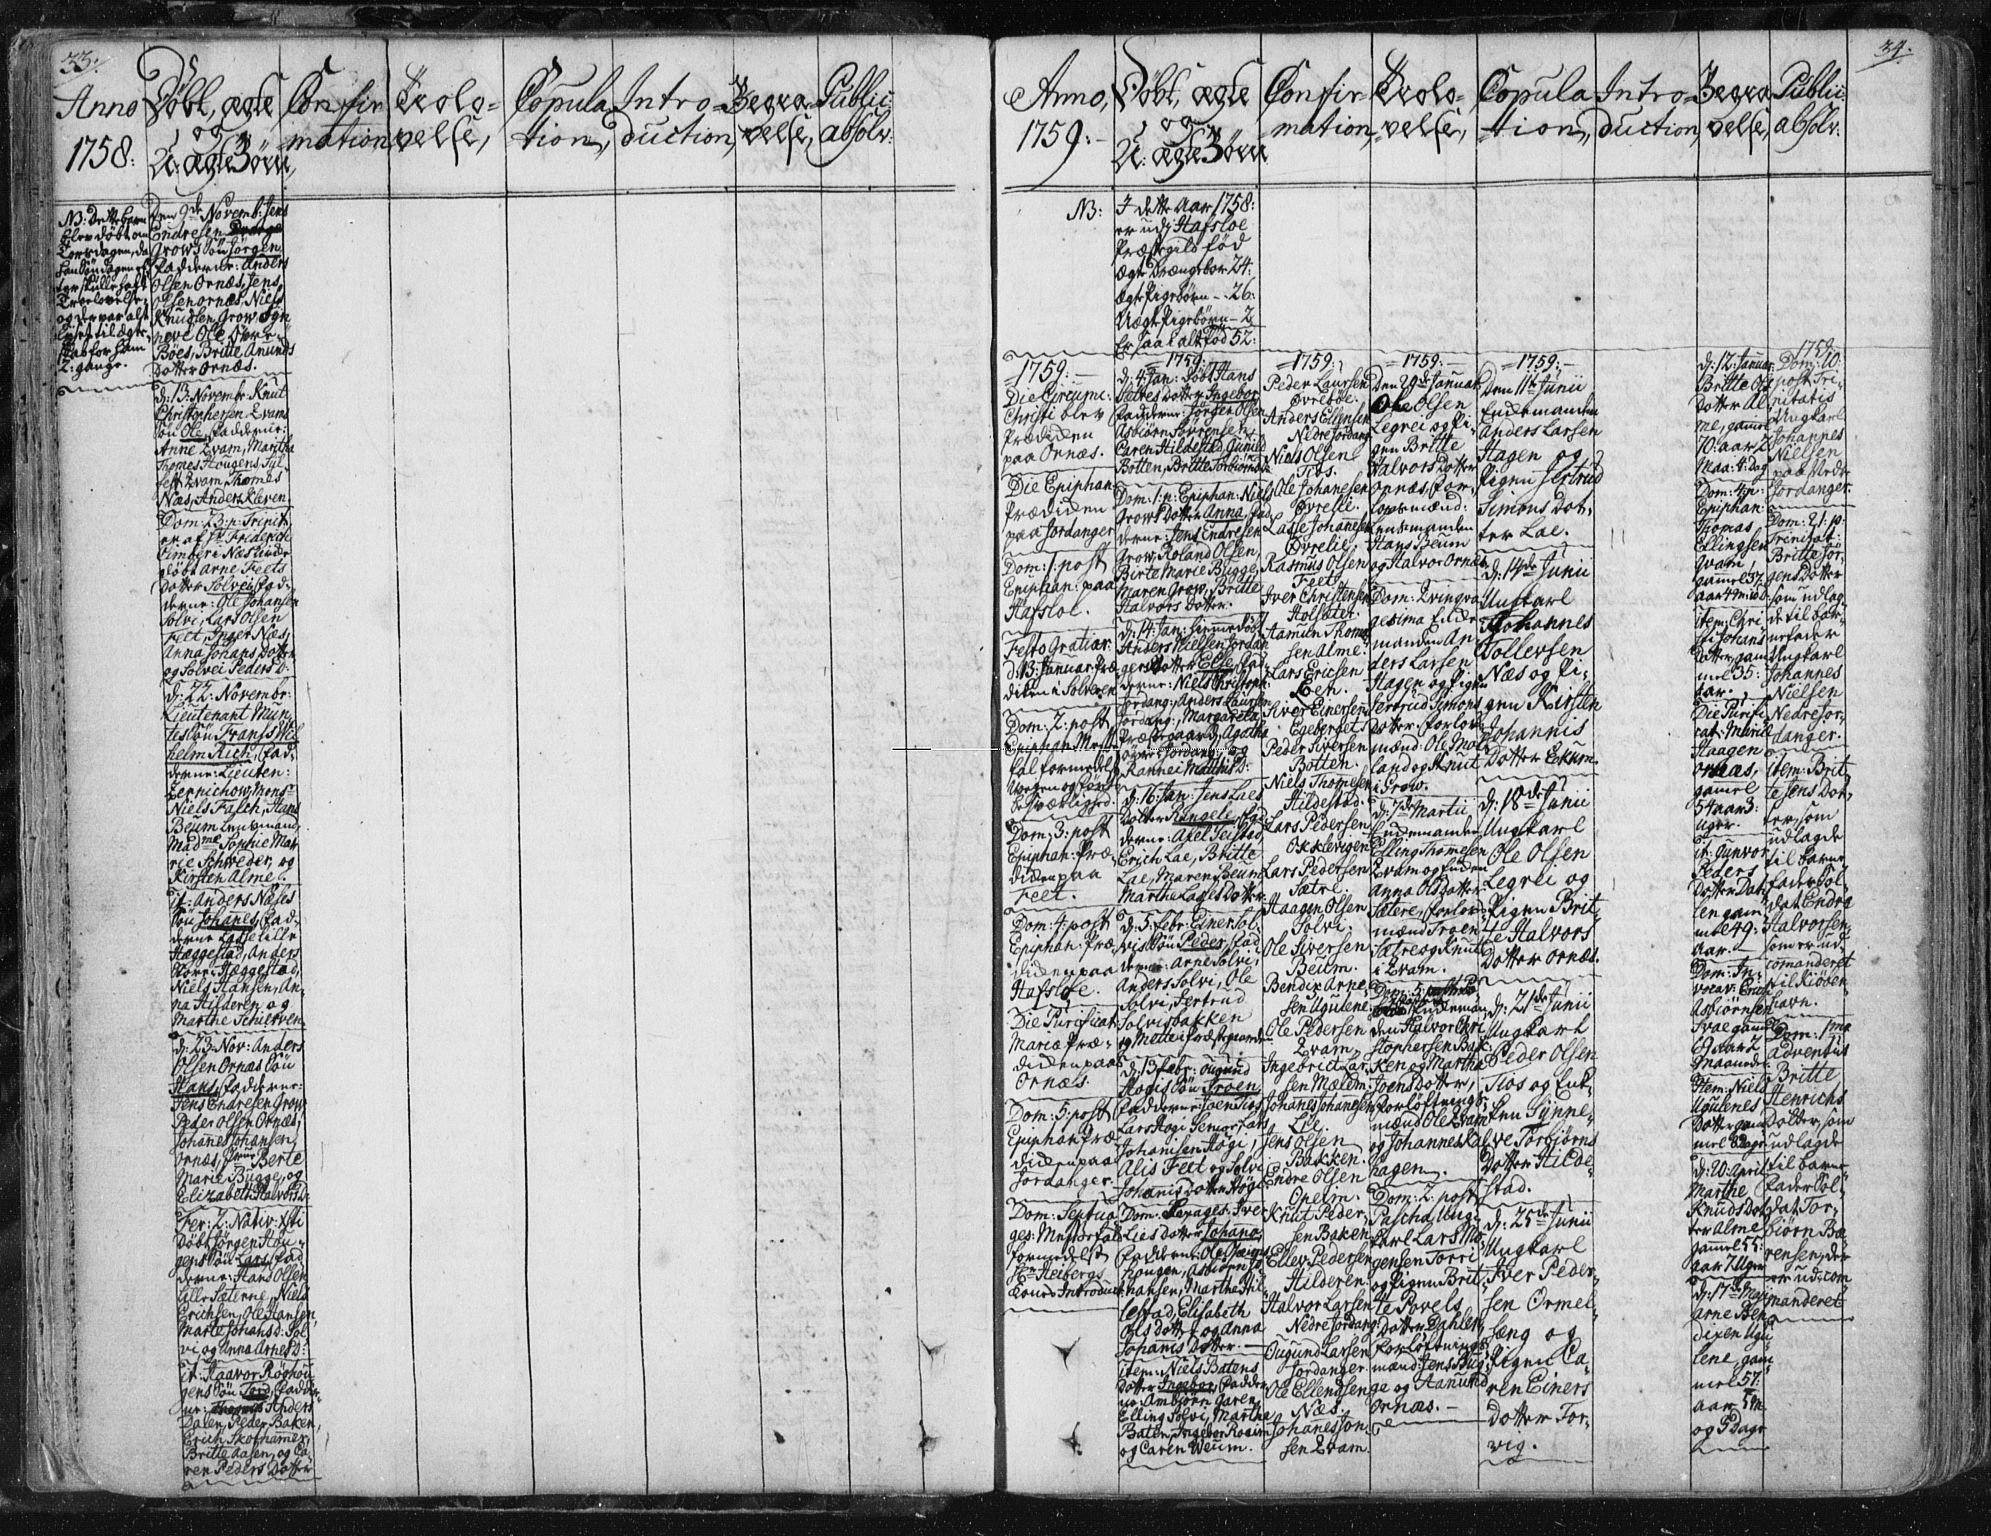 33.
Anno
1758:
Døbt, ægte
og
U: ægte Børn,
Confir
mation
Trolo-
velse,
Copula
tion,
Intro-
duction,
Begra-
velse,
Public:
absolv:
NB: Dette barn
blev døbt om
Torsdagen, da
og der var alt
lyset til ægte-
skab for ham
2: gange.
Den 9de Novemb: Jens
Endresen
Grows Søn Jørgen
fadderne: Anders
Olsen Ornæs, Jens
Olsen Ornæs, Niels
Knudsen Grow
Ole
Bøes, Britte Amunds
Dotter Ornæs.
d: 13: Novembr: Knut
Christophersen Kvams
Søn Ole, fadderne:
Anne Kvam, Martha
Thomes Hougen,
Kvam, Thomas
Næs, Anders Kleven
Dom: 23: p: Trinit:
er af Hr Friderich
døbt Arne Feets
Dotter Solvei, fad-
derne: Ole Johansen
Solvi, Lars Olsen
Feet, Inger Næs,
Anna Johans Dotter
og Solvei Peders D:
d: 22: Novembr:
Lieutenant Mun-
tes Søn Frans Wil-
helm Rich, fad-
derne: Lieuten:
Zernichow, Monsr
Niels Falch, Hans
Beum Lensmand,
Madme Sophie Ma-
rie Schweder, og
Kirsten Alme.
it: Anders Næses
Søn Johanes, fad-
derne Lasse Lille
Hæggestad, Anders
Store Hæggestad,
Niels Hansen, An-
na Hilderen, og
Marthe
d: 23: Nov: Anders
Olsen Ornæs Søn
Hans, fadderne:
Jens Endresen Grow
Peder Olsen Ornæs,
Johanes Johansen
Ornæs, Berte
Marie Bugge, og
Elizabeth Halvors D:
Fer: 2: Nativ: Xsti
døbt Jørgen Hou-
gens Søn Lars, fad-
derne: Hans Olsen
Lille Sæterne, Niels
Erichsen, Ole Hansen,
Marte Johans D: Sol-
vi, og Anna Arnes D:
it: Haavor Røghou-
gens Søn Tord, fadder-
ne: Anders
Dalen, Peder Baken,
Erich Skofhammer,
Britte Dalen, og Ca-
ren Peders Dotter
34.
Anno,
1759:-
Døbt, ægte
og
U: ægte Børn
Confir-
mation,
Trolo-
velse,
Copula
-tion,
Intro-
duction,
Begra
velse,
Public:
absolv:
NB:
I dette Aar 1758:
er udj Hafsloe
Præstegield fød
Ægte Drængebør 24:
Ægte Pigebørn - 26:
Uægte Pigebørn - 2
Er saa i alt fød 52:
1759:-
Die Circumc:
Christi blev
Prædiken
paa Ornæs.
Die Epiphan:
Prædiken
paa Jordanger
Dom: 1: post
Epiphan: paa
Hafsloe.
Festo Gratiar:
d: 13: Januar Præ-
diken i Solvoren
Dom: 2: post
Epiphan Mess
fal formedelst
Veyen og Føret
Dom: 3: post
Epiphan: Præ-
diken paa
Feet.
Dom: 4: post
Epiphan: Præ-
diken paa
Hafsloe.
Die Purificat:
Mariæ Præ-
diken paa
Ornæs.
Dom: 5: post
Epiphan Præ-
diken paa
Jordanger.
Dom: Septua
ges: Messefald
formedelst
Hr Heibergs
Introduct:
1759:
d: 4: Jan: døbt Hans
Sætres Dotter Ingebor
fadderne: Jørgen Olsen
Asbiørn Sørrensen,
Caren Hildestad, Gunild
Botten, Britte Torbiørns D:
Dom: 1: p: Epiphan: Niels
Grows Dotter Anna, fad
derne: Jens Endresen
Grow, Roland Olsen,
Birte Marie Bugge,
Maren Grow, Britte
Halvors Dotter.
d: 14: Jan: hiemmedøbt
Anders Nielsen Jordan
gers Dotter Else, fad-
derne: Niels Christoph:
Jordang: Anders Laursen
Jordang: Margareta
Præstegaard, Agatha
øvre Jordang: og
Rannei Matthis D:
d: 16: Jan: Jens Laes
Dotter Rangele, fad-
derne: Axel Seistad
Erich Lae, Britte
Lae, Maren Beum
Marthe Lages Dotter
d: 5: febr: Einer Sol-
vis Søn Peder, fad-
derne: Arne Solvi,
Anders Solvi, Ole
Solvi, Gertrud
Solvisbakken
og Mette i Præstegaarde
d: 13 febr: Ougund
Høgis Søn Troen,
fadderne: Joen Tios
Lars Høgi Senior, Lars
Johannsen Høgi,
Alis Feet og Solvi
Johanis Dotter Høgi
Dom: Sexages: Iver
Lies Dotter Johana,
fadderne: Ole
Hougen, Asbiørn Jo-
hansen, Marthe Hil-
lestad, Elisabeth
Ols dotter og Anna
Johanis Dotter.
item: Niels Batens
Dotter Ingebor, fadder
ne Ambiørn Garen,
Elling Solvi, Martha
Baten, Ingebor Roeim
og Caren Weum.
1759:
Peder Laursen
Øvrebøe.
Anders Ellensen
Nedre Jordang
Niels Olsen
Tios.
Ole Johanesen
Øvrelie.
Lasse Johannesen
Øvrelie
Rasmus Olsen
Feet.
Iver Christensen
Holsæter
Aamun Thomes
sen Alme.
Lars Ericsen
Leri.
Siver Einersen
Egeberget
Peder Iversen
Botten.
Niels Thomesen
Hildestad.
Lars Pedersen
Oxlevigen
Lars Pedersen
Sætre.
Haagen Olsen
Solvi.
Ole Siversen
Beum.
Bendix Arne-
sen Ugulene
Ole Pedersen
Kvam,
Ingebrict Lar-
sen Mælem,
Johannes Johannesen
Lie.
Jens Olsen
Bakken.
Endre Olsen
Opeim.
Knut Peder-
sen Baken
Ellev Pedersen
Hilderen.
Halvor Larsen
Nedre Jordang
Ougund Larsen
Jordanger
Ole Ellendsen
Næs.
Johanes Jon-
sen Kvam.
1759:
Den 29de Januar:
Ole Olsen
Legrei og Pi-
gen Britte
Halvors Dotter
Ornæs, for-
lovsmænd:
Lensmanden
Hans Beum
og Halvor Ornæs
Dom: Qvinqva-
gesima Enke-
manden An-
ders Larsen
Hagen og Pigen
Gertrud Simons
Dotter, forlov
mænd: Ole Mo-
land og Knut
i Grow.
d: 7de Martii
Enkemanden
Elling Thomesen
Kvam og Enken
Anna Olsdotter
Sætere, forlov
mænd Troen
Sætre og Knut
i Kvam.
Dom: 5:
Enkeman
den Halvor Chri
stophersen Bak
ken og Martha
Joensdotter,
Forløftnings-
mænd Ole Kvam
og Johannes Kal
hagen.
Dom: 2: post
Pascha Ung-
karl Lars Mo-
gensen Torri
og Pigen Brit-
te Povels
Dotter Dahlen,
Forløftnings-
mænd: Jens Bug-
ge og Aamund
Ornæs.-
1759:-
Den 11te Junii
Enkemanden
Anders Larsen
Hagen og
Pigen Gertrud
Simons Dot-
ter Lae.
d: 14de Junii
Ungkarl
Johannes
Tollevsen
Næs og Pi-
gen Kirsten
Johannis
Dotter Eikum.
d: 18de Junii
Ungkarl
Ole Olsen
Legrei og
Pigen Brit-
te Halvors
Dotter Ornæs.
d: 21de Junii
Ungkarl
Peder Olsen
Tios og En-
ken Synne-
ve Torbiørns
Dotter Hilde-
stad.
d: 25de Junii
Ungkarl
Iver Peder-
sen Ormel-
sæng og
Pigen Ca-
ren Einers
Dotter Tor-
vig.
d: 12: Januar
Britte Ols
Dotter Al-
me, gamel
70 aar 2
Maa: 4: Dag
Dom: 4: p:
Epiphan:
Thomas
Ellingsen
Kvam,
gamel 37
item: Chri-
sti Johans
Dotter gam-
mel 35:
aar.
Die Purifi-
cat: Mariæ
Haagen
Ornæs,
gamel
54 aar 3:
uger.
it: Gunvor
Peders
Dotter Dah-
len gam-
mel 49:
aar.
Dom: In-
vocav: Erich
Asbiørnsen
gaml
69 aar 2
Maaneder
Item: Niels
Ugulenes
Dotter gam
mel 8 dage
d: 20: April
Marthe
Knuds Dot-
ter Alme
gamel 55:
aar 7 Uger
d: 17de Maji
Arne Ben-
dixen Ugu-
lene, gam
mel 57
aar 5 m.
og 5 dage
1759:
Dom: 10:
post Tri-
nitatis
Ungkarl
Johannes
Nielsen
paa Nedre
Jordanger.
Dom: 21: p:
Trinitat:
Britte Jør-
gens Dotter
som udlag-
de til bar-
nefader
Ungkarl
Johannes
Nielsen
Nedre Jor-
danger.
item: Brit-
te Jens Dot-
ter, som
udlagde
til barne-
fader Sol-
dat Endre
Halvorsen,
som er ud-
comanderet
til Kiøben-
havn.
Dom: 1ma
Adventus
Britte
Henrichs
Dotter, som
udlagde
til barne
fader Sol-
dat Tor-
biørn Ba-
rensen, der
er ud: com
manderet